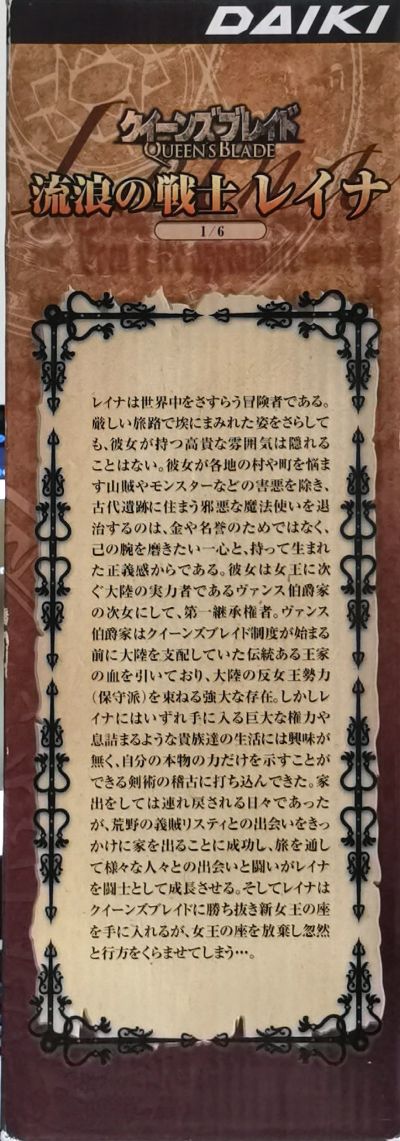 DAIKI
クイーンズブレイド
QUEEN'S BLADE
流浪の戦士 レイナ
1/6
レイナは世界中をさすらう冒険者である。
厳しい旅路で埃にまみれた姿をさらして
も、彼女が持つ高貴な雰囲気は隠れる
ことはない。彼女が各地の村や町を悩ま
す山賊やモンスターなどの害悪を除き、
古代遺跡に住まう邪悪な魔法使いを退
治するのは、金や名誉のためではなく、
己の腕を磨きたい一心と、持って生まれ
た正義感からである。彼女は女王に次
ぐ大陸の実力者であるヴァンス伯爵家
の次女にして、第一継承権者。ヴァンス
伯爵家はクイーンズブレイド制度が始まる
前に大陸を支配していた伝統ある王家
の血を引いており、大陸の反女王勢力
（保守派）を束ねる強大な存在。しかしレ
イナにはいずれ手に入る巨大な権力や
息詰まるような貴族達の生活には興味が
無く、自分の本物の力だけを示すことが
できる剣術の稽古に打ち込んできた。家
出をしては連れ戻される日々であった
が、荒野の義賊リスティとの出会いをきっ
かけに家を出ることに成功し、旅を通し
て様々な人々との出会いと闘いがレイナ
を闘士として成長させる。そしてレイナは
クイーンズブレイドに勝ち抜き新女王の座
を手に入れるが、女王の座を放棄し忽然
と行方をくらませてしまう…。